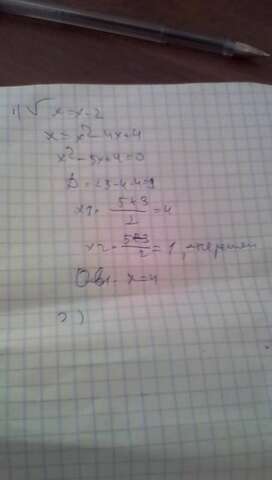 1) √x = x-2
x = x²-4x+4
x²-5x+4=0
D = 25-4·4=9
x1 = 5+3/2 = 4
x2 = 5-3/2 = 1,
Отв. x=4
2)